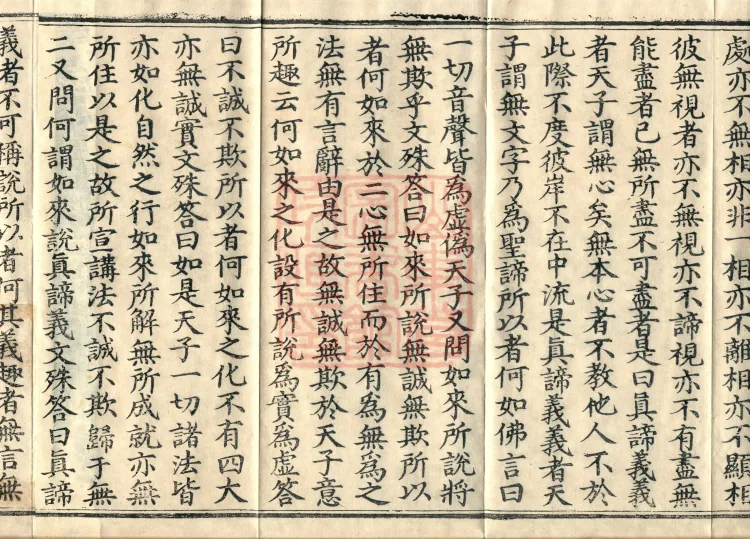 處亦不無相亦非一相亦不離相亦不顯相
彼無視者亦不無視亦不諦視亦不有盡無
能盡者已無所盡不可盡者是曰真諦義義
者天子謂無心矣無本心者不教他人不於
此際不度彼岸不在中流是真諦義義者天
子謂無文字乃為聖諦所以者何如佛言曰
一切音聲皆為虛偽天子又問如來所說將
無欺乎文殊答曰如來所說無誠無欺所以
者何如來於二心無所住而於有為無為之
法無有言辭由是之故無誠無欺於天子意
所趣云何如來之化設有所說為實為虛答
曰不誠不欺所以者何如來之化不有四大
亦無誠實文殊答曰如是天子一切諸法皆
亦如化自然之行如來所解無所成就亦無
所住以是之故所宣講法不誠不欺歸于無
二又問何謂如來說真諦義文殊答曰真諦
義者不可稱說所以者何其義趣者無言無